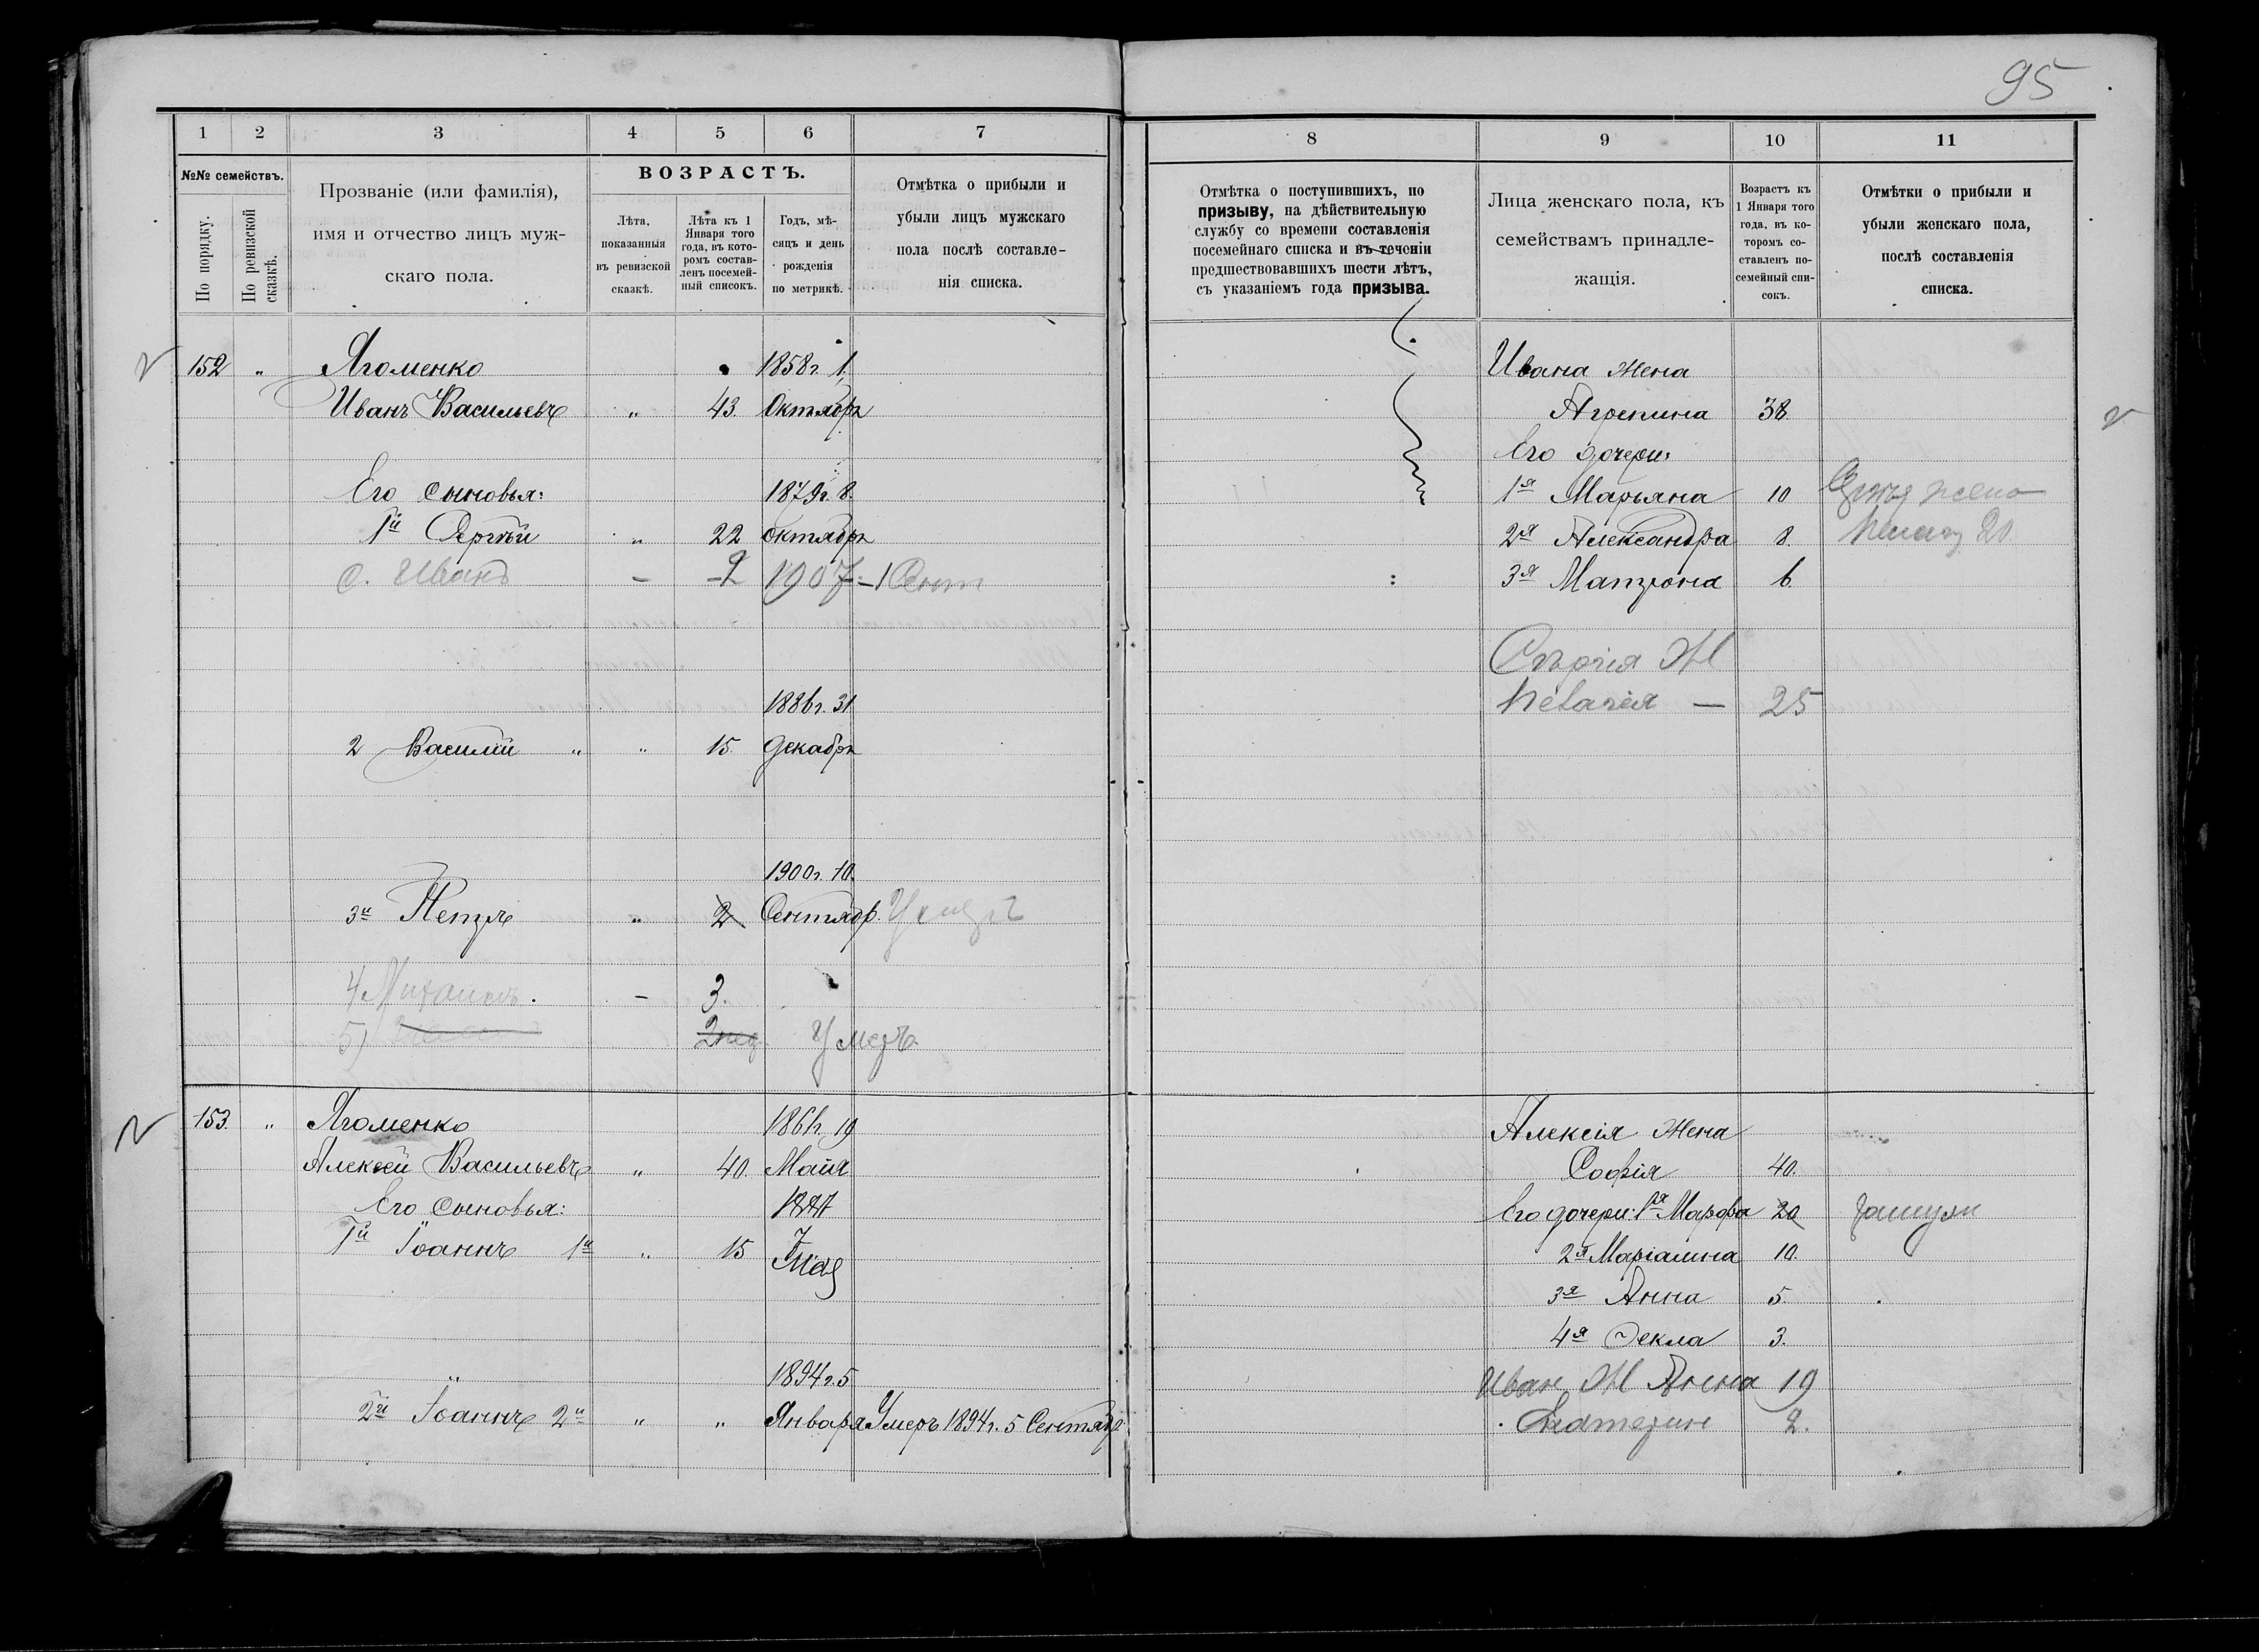 95
1 2 3 4 5 6 7
№№ семействъ.
По порядку.
По ревизской сказкѣ.
Прозваніе (или фамилія),
имя и отчество лицъ муж-
скаго пола.
ВОЗРАСТЪ.
Лѣта,
показанныя
въ ревизской
сказкѣ.
Лѣта къ 1
Января того
года, въ кото-
ромъ состав-
ленъ посемей-
ный списокъ.
Годъ, мѣ-
сяцъ и день
рожденія
по метрикѣ.
Отмѣтка о прибыли и
убыли лицъ мужскаго
пола послѣ составле-
нія списка.
152 „ Ягоменко 1858 г. 1
Иванъ Васильевъ „ 43. Октября
Его сыновья: 1879 г. 8.
1й Сергѣй „ 22 октября
с. Иванъ — 2 1907 – 1 Сент
1886 г. 31
2 Василій „ „ 15. декабря
1900 г. 10.
3й Петръ „ 2 Сентябр.
4 Михаилъ. — 3.
5) 2 нед. Умеръ
153. „ Ягоменко 1861 г. 19
Алексѣй Васильевъ „ 40. Мая
Его сыновья:
1й Іоаннъ 1й „ 15 7 Мая
1894 г. 5
2й Іоаннъ 2й „ „ Января Умеръ 1894 г. 5 Сентябр
8 9 10 11
Отмѣтка о поступившихъ, по
призыву, на дѣйствительную
службу со времени составленія
посемейнаго списка и въ теченіи
предшествовавшихъ шести лѣтъ,
съ указаніемъ года призыва.
Лица женскаго пола, къ
семействамъ принадле-
жащія.
Возрастъ къ
1 Января того
года, въ ко-
торомъ со-
ставленъ по-
семейный спи-
сокъ.
Отмѣтки о прибыли и
убыли женскаго пола,
послѣ составленія
списка.
Ивана жена
Агрепина 38.
Его дочери:
1я Марьяна 10
2я Александра 8.
3я Матрона 6.
Сергія Ж
Пелагія — 25
Алексія жена
Софія 40.
Его дочери: 1я Марфа 20 Замуж
2я Маріамна 10.
3я Анна 5.
4я Ѳекла 3.
Иван Ж Анна 19
Екатерин 2.